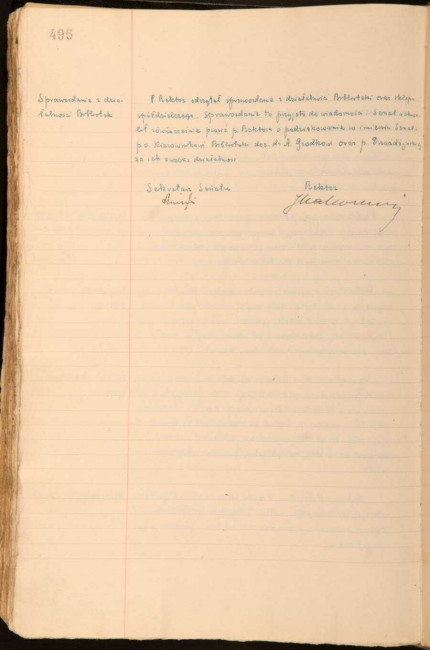 495
Sprawozdania z dzia-
łalności Bibliotek
P. Rektor odczytał sprawozdania z działalności Biblioteki oraz sklepu
spółdzielczego. Sprawozdania te przyjęto do wiadomości. Senat uchwa-
lił równocześnie prosić p. Rektora o podziękowanie w imieniu Senatu
p. Kierownikowi Biblioteki doc. dr. A. oraz p.
za ich owocną działalność.
Sekretarz Senatu
Rektor